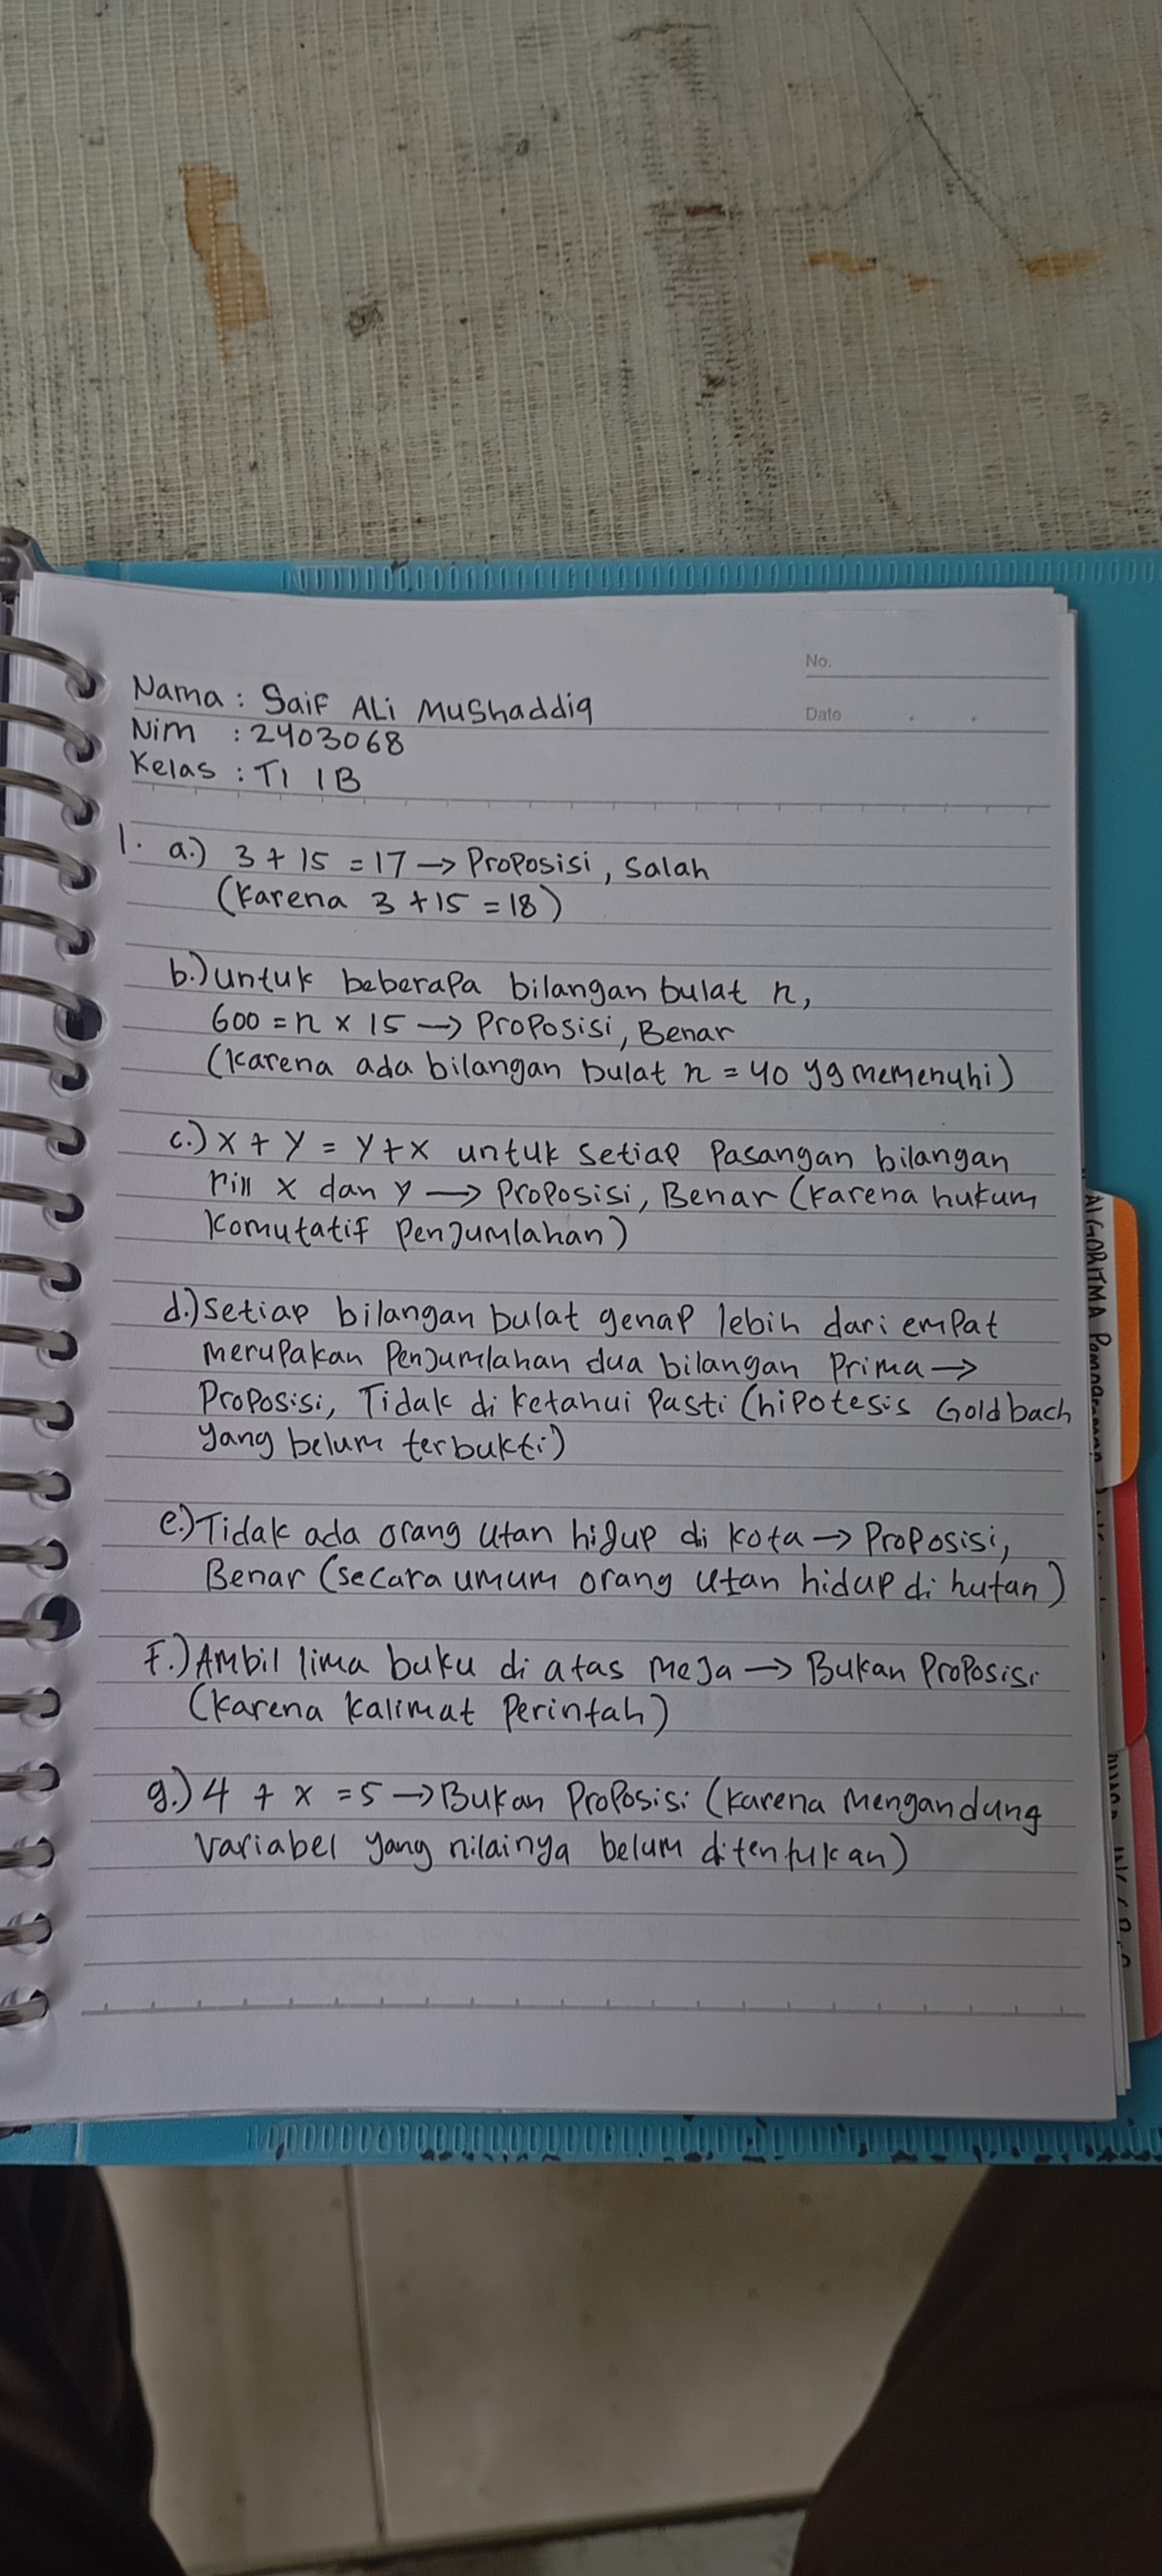 No.
Date
Nama : Saif ALi Mushaddiq
Nim : 2403068
Kelas : TI 1B
1. a.) 3 + 15 = 17 → Proposisi, salah
(karena 3 + 15 = 18)
b.) untuk beberapa bilangan bulat n,
600 = n x 15 → Proposisi, Benar
(karena ada bilangan bulat n = 40 yg memenuhi)
c.) x + y = y + x untuk setiap Pasangan bilangan
riil x dan y → Proposisi, Benar (karena hukum
komutatif Penjumlahan)
d.) setiap bilangan bulat genap lebih dari empat
merupakan Penjumlahan dua bilangan Prima →
Proposisi, Tidak di ketahui Pasti (hipotesis Goldbach
yang belum terbukti)
e.) Tidak ada orang utan hidup di kota → Proposisi,
Benar (secara umum orang utan hidup di hutan)
F.) Ambil lima buku di atas meja → Bukan Proposisi
(karena kalimat Perintah)
g.) 4 + x = 5 → Bukan Proposisi (karena mengandung
variabel yang nilainya belum ditentukan)
ALGORITMA